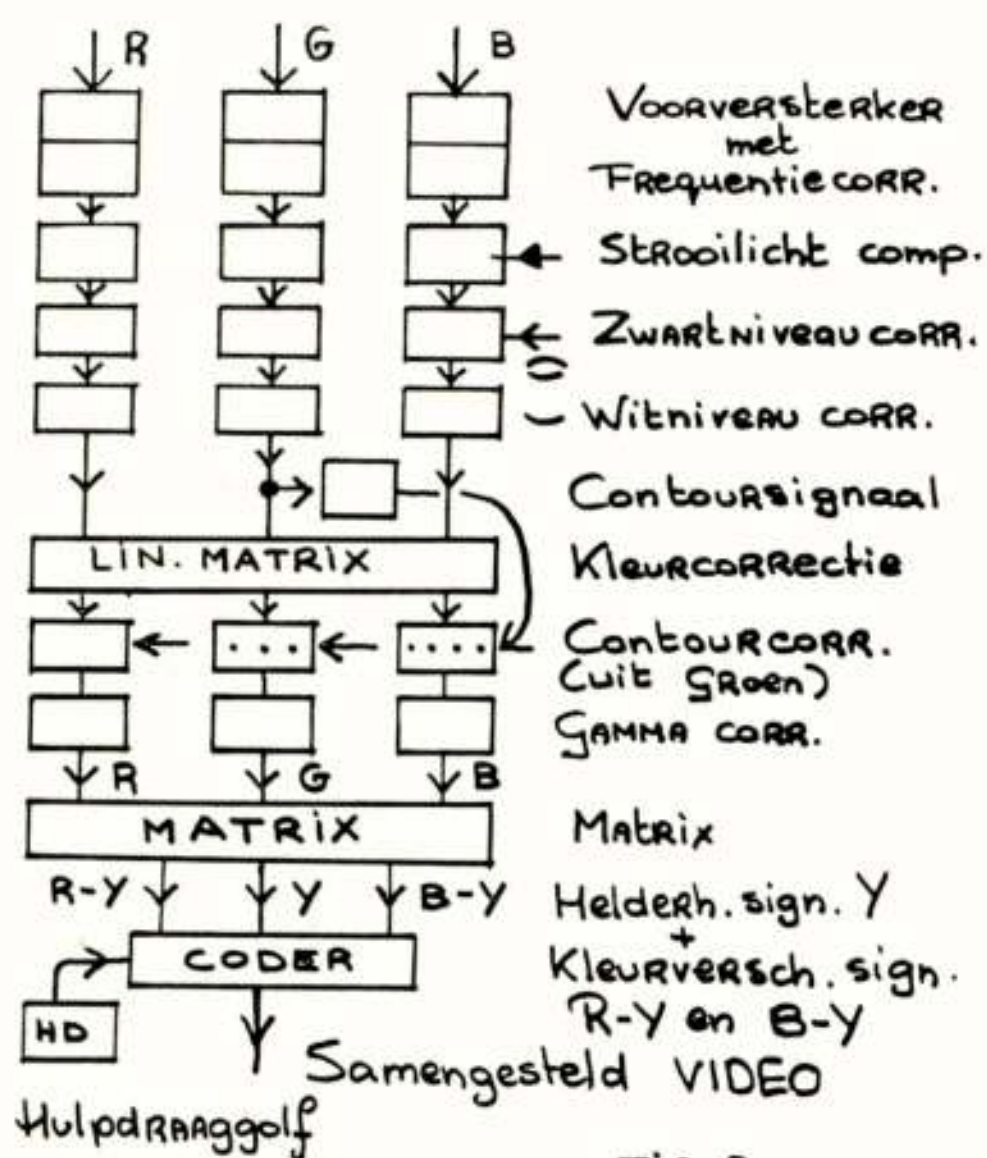 R G B
Voorversterker
met
Frequentiecorr.
Strooilicht comp.
Zwartniveau corr.
Witniveau corr.
Contoursignaal
LIN. MATRIX
Kleurcorrectie
Contourcorr.
(uit Groen)
Gamma corr.
R G B
MATRIX
Matrix
R-Y Y B-Y
Helderh. sign. Y
+
CODER
Kleurversch. sign.
R-Y en B-Y
HD
Samengesteld VIDEO
Hulpdraaggolf